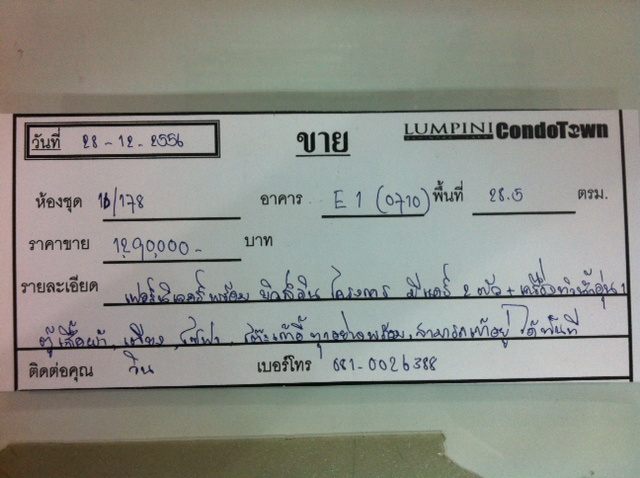 วันที่ 28-12-2556
ขาย
LUMPINI CondoTown
ห้องชุด 16/178 อาคาร E1 (0710) พื้นที่ 28.5 ตรม.
ราคาขาย 1,290,000- บาท
รายละเอียด เฟอร์นิเจอร์พร้อม บิวส์อิน โครงการ มีแอร์ 2 ตัว + เครื่องทำน้ำอุ่น,
ตู้เสื้อผ้า, เตียง, โซฟา, โต๊ะเก้าอี้ ทุกอย่างพร้อม, สามารถเข้าอยู่ ได้ทันที
ติดต่อคุณ วิน เบอร์โทร 081-0026388